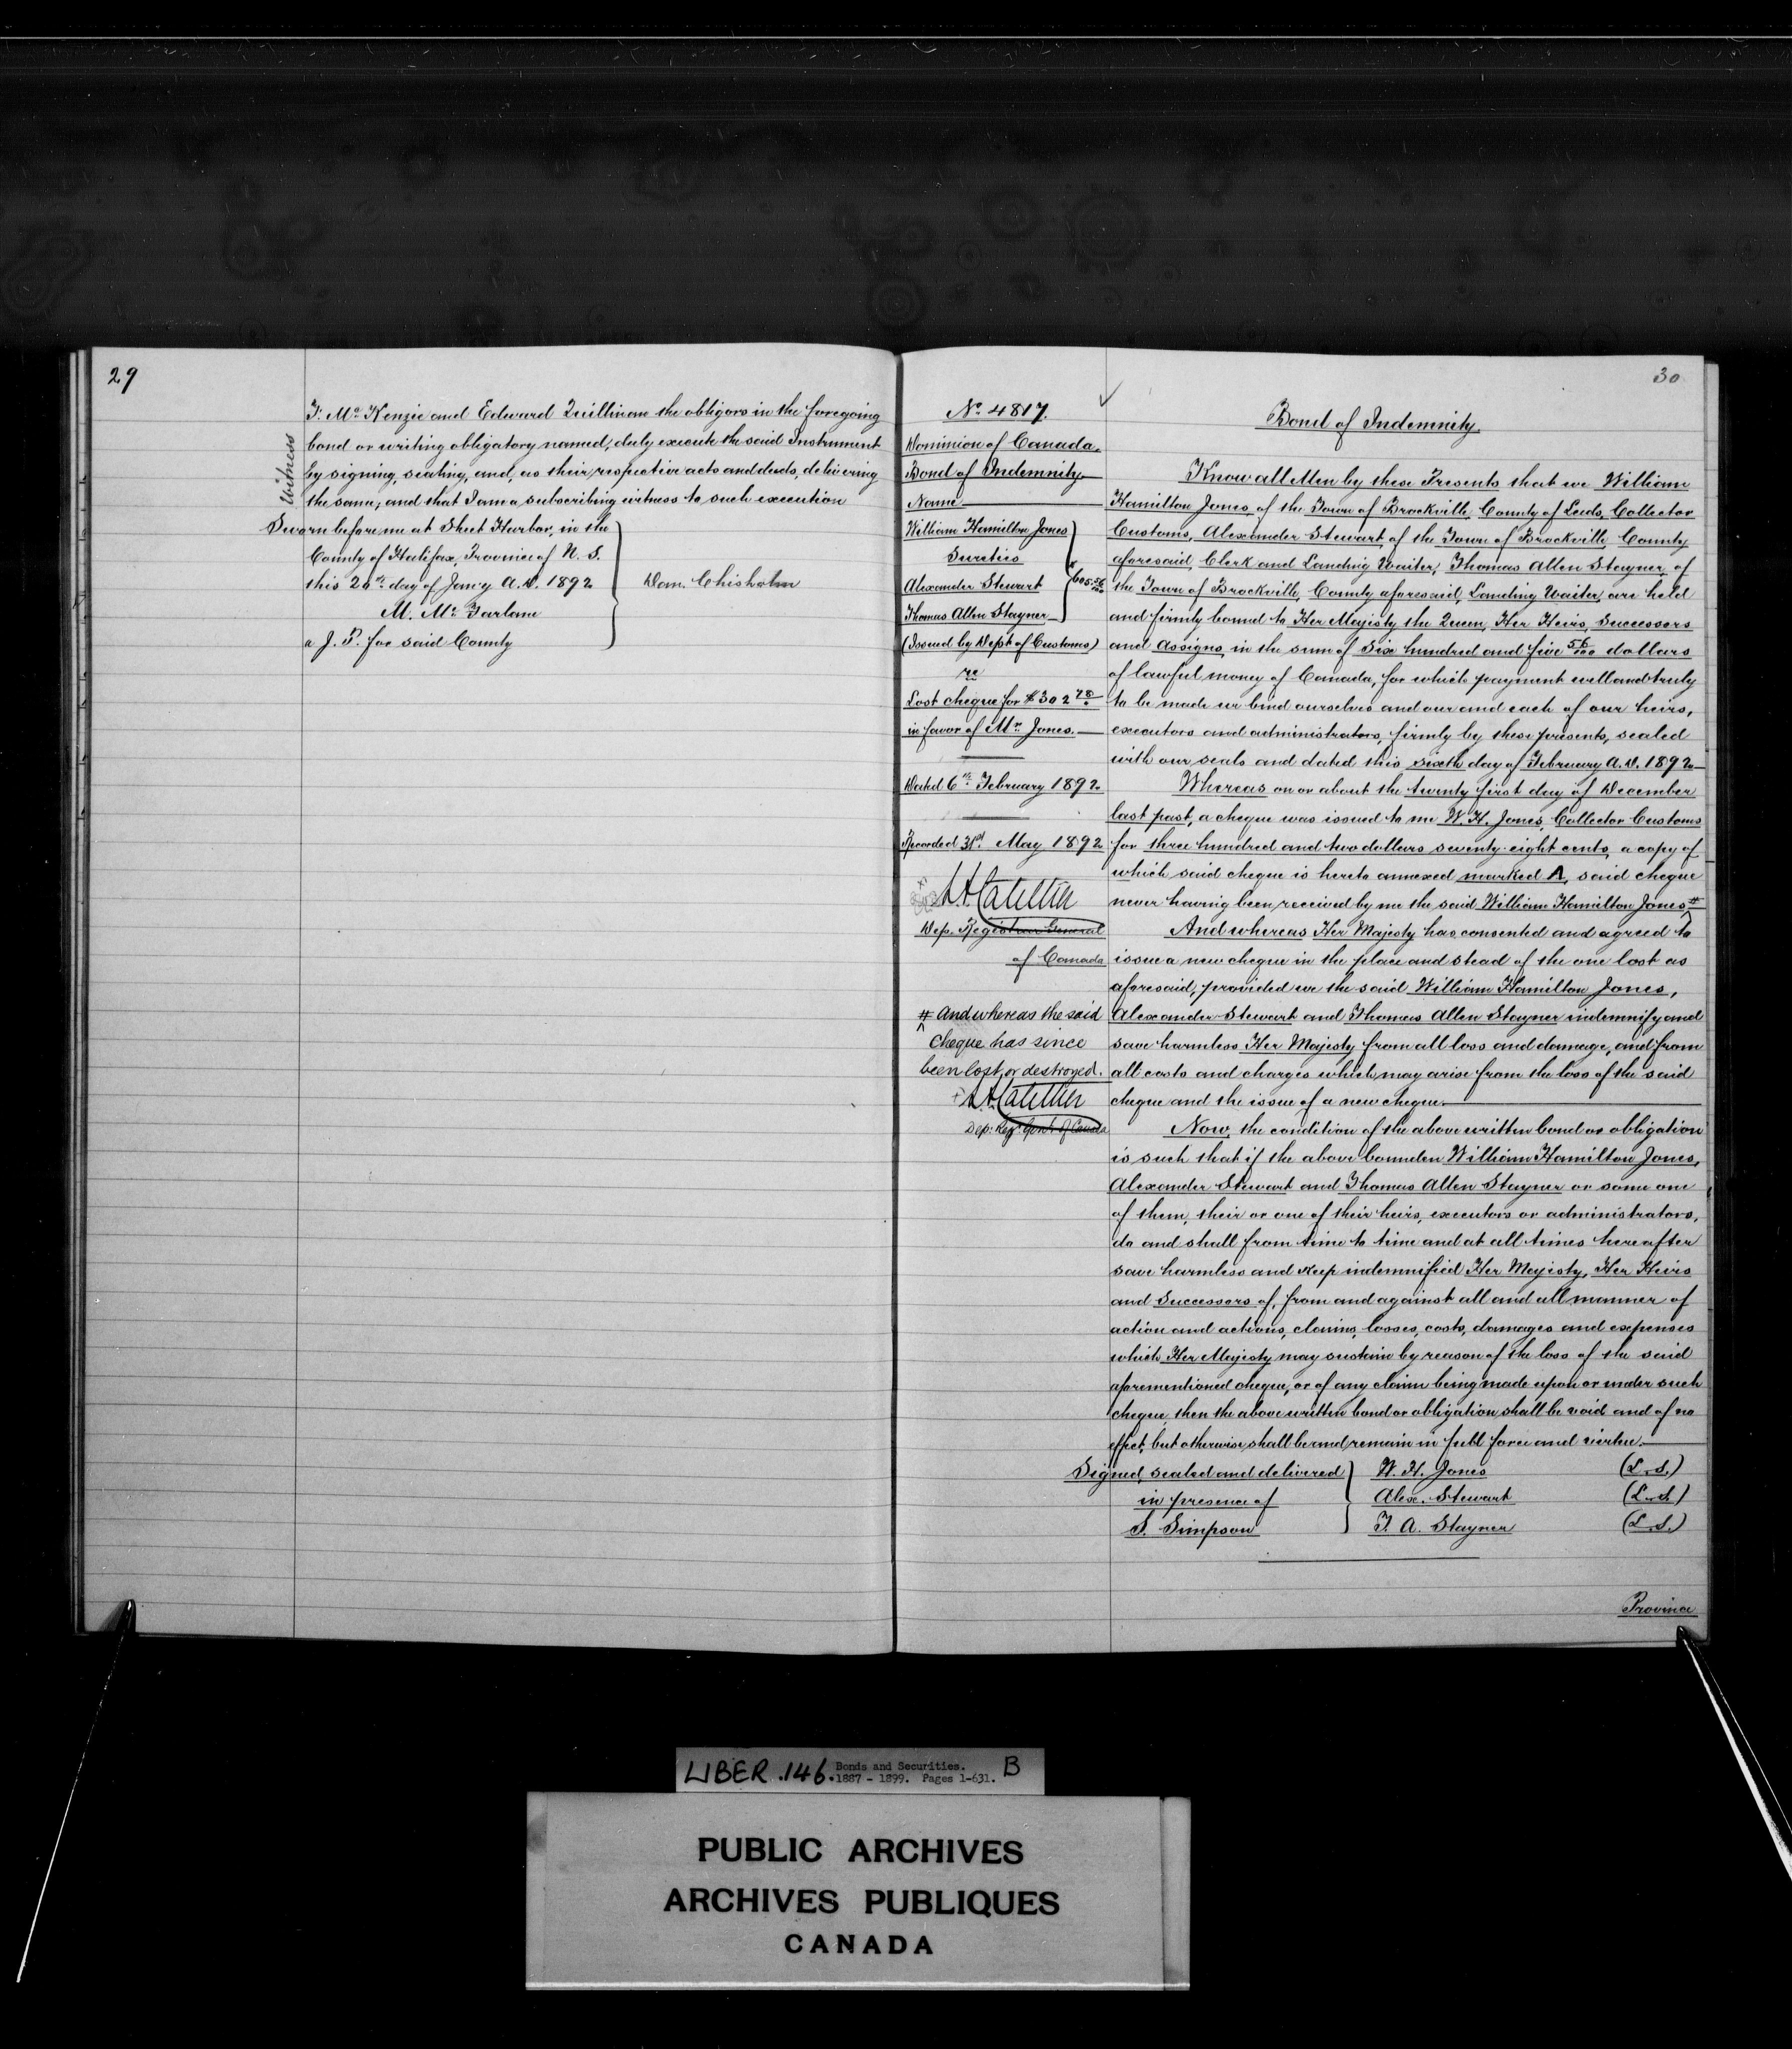 29
J. Mc Kenzie and Edward Quillinan the obligors in the foregoing
bond or writing obligatory named, duly execute the said Instrument
by signing, sealing, and, as their respective acts and deeds, delivering
the same, and that I am a subscribing witness to such execution
Witness
Sworn before me at Sheet Harbor, in the
County of Halifax, Province of N. S.
this 26th day of Jan'y A.D. 1892
M. Mc Farlane
a J. P. for said County
Dan. Chisholm
30
No. 4817.
Dominion of Canada.
Bond of Indemnity.
Name
William Hamilton Jones
Sureties
Alexander Stewart
Thomas Allen Stayner
$605.56/100
(Issued by Dept of Customs)
re
Lost cheque for $302.78
in favor of Mr. Jones.
Dated 6th February 1892.
Recorded 31st May 1892
L.A. Catellier
Dep. Registrar General
of Canada
# and whereas the said
cheque has since
been lost or destroyed.
L.A. Catellier
Dep. Reg. Genl. of Canada
Bond of Indemnity.
Know all Men by these Presents that we William
Hamilton Jones of the Town of Brockville, County of Leeds, Collector
Customs, Alexander Stewart of the Town of Brockville County
aforesaid, Clerk and Landing Waiter, Thomas Allen Stayner of
the Town of Brockville, County aforesaid, Landing Waiter, are held
and firmly bound to Her Majesty the Queen, Her Heirs, Successors
and Assigns, in the sum of Six hundred and five 56/100 dollars
of lawful money of Canada, for which payment well and truly
to be made we bind ourselves and our and each of our heirs,
executors and administrators, firmly by these presents, sealed
with our seals and dated this sixth day of February A.D. 1892
Whereas on or about the twenty first day of December
last past, a cheque was issued to me W. H. Jones, Collector Customs
for three hundred and two dollars seventy-eight cents, a copy of
which said cheque is hereto annexed marked A, said cheque
never having been received by me the said William Hamilton Jones #
And whereas Her Majesty has consented and agreed to
issue a new cheque in the place and stead of the one lost as
aforesaid, provided we the said William Hamilton Jones,
Alexander Stewart and Thomas Allen Stayner indemnify and
save harmless Her Majesty from all loss and damage, and from
all costs and charges which may arise from the loss of the said
cheque and the issue of a new cheque.
Now, the condition of the above written bond or obligation
is such that if the above bounden William Hamilton Jones,
Alexander Stewart and Thomas Allen Stayner or some one
of them, their or one of their heirs, executors or administrators,
do and shall from time to time and at all times hereafter
save harmless and keep indemnified Her Majesty, Her Heirs
and Successors of, from and against all and all manner of
action and actions, claims, losses, costs, damages and expenses
which Her Majesty may sustain by reason of the loss of the said
aforementioned cheque, or of any claim being made upon or under such
cheque, then the above written bond or obligation shall be void and of no
effect, but otherwise shall be and remain in full force and virtue.
Signed, sealed and delivered
in presence of
S. Simpson
W. H. Jones (L.S.)
Alex. Stewart (L.S.)
T. A. Stayner (L.S.)
Province
LIBER .146. Bonds and Securities.
1887 - 1899. Pages 1-631. B
PUBLIC ARCHIVES
ARCHIVES PUBLIQUES
CANADA